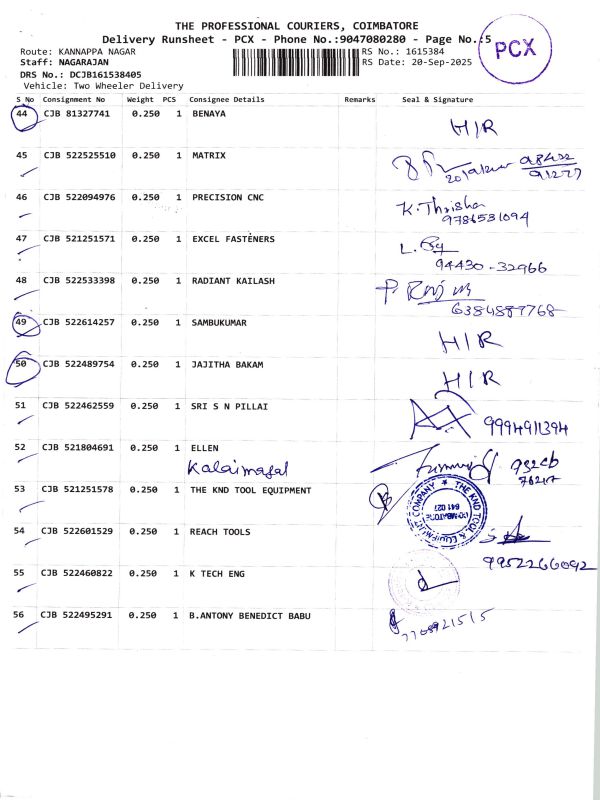 THE PROFESSIONAL COURIERS, COIMBATORE
Delivery Runsheet - PCX - Phone No.:9047080280 - Page No.:5
PCX
Route: KANNAPPA NAGAR RS No.: 1615384
Staff: NAGARAJAN RS Date: 20-Sep-2025
DRS No.: DCJB161538405
Vehicle: Two Wheeler Delivery
S No Consignment No Weight PCS Consignee Details Remarks Seal & Signature
44 CJB 81327741 0.250 1 BENAYA H/R
45 CJB 522525510 0.250 1 MATRIX 98422
91277
46 CJB 522094976 0.250 1 PRECISION CNC K. Thrisha
9786531094
47 CJB 521251571 0.250 1 EXCEL FASTENERS
94430-32966
48 CJB 522533398 0.250 1 RADIANT KAILASH
6384887768
49 CJB 522614257 0.250 1 SAMBUKUMAR H/R
50 CJB 522489754 0.250 1 JAJITHA BAKAM H/R
51 CJB 522462559 0.250 1 SRI S N PILLAI 9994911394
52 CJB 521804691 0.250 1 ELLEN
Kalaimagal
53 CJB 521251578 0.250 1 THE KND TOOL EQUIPMENT THE KND TOOL & EQUIPMENT COMPANY
COIMBATORE
641 027
54 CJB 522601529 0.250 1 REACH TOOLS
9952266092
55 CJB 522460822 0.250 1 K TECH ENG
56 CJB 522495291 0.250 1 B.ANTONY BENEDICT BABU 7708921515